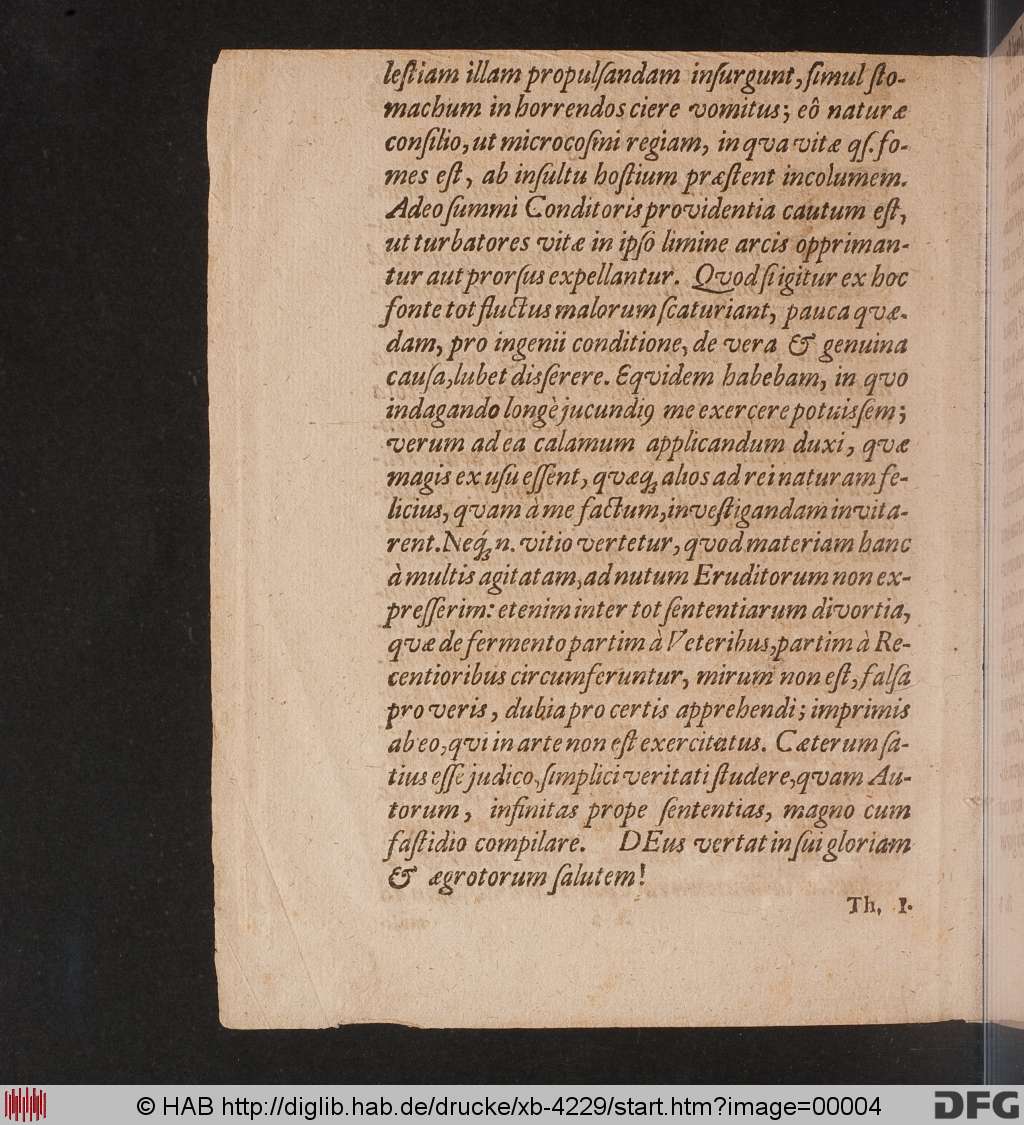 leſtiam illam propulſandam inſurgunt, ſimul ſto-
machum in horrendos ciere vomitus; eô naturæ
conſilio, ut microcoſmi regiam, in qva vitæ qſ. fo-
mes eſt, ab inſultu hoſtium præſtent incolumem.
Adeo ſummi Conditoris providentia cautum eſt,
ut turbatores vitæ in ipſo limine arcis oppriman-
tur aut prorſus expellantur. Qvod ſi igitur ex hoc
fonte tot fluctus malorum ſcaturiant, pauca qvæ-
dam, pro ingenii conditione, de vera & genuina
cauſa, lubet disſerere. Eqvidem habebam, in qvo
indagando longè jucundiꝰ me exercere potuisſem;
verum ad ea calamum applicandum duxi, qvæ
magis ex uſu eſſent, qvæq́; alios ad rei naturam fe-
licius, qvam à me factum, inveſtigandam invita-
rent. Neq́; n. vitio vertetur, qvod materiam hanc
à multis agitatam, ad nutum Eruditorum non ex-
preſſerim: etenim inter tot ſententiarum divortia,
qvæ de fermento partim à Veteribus, partim à Re-
centioribus circumferuntur, mirum non eſt, falſa
pro veris, dubia pro certis apprehendi; imprimis
ab eo, qvi in arte non eſt exercitatus. Cæterum ſa-
tius eſſe judico, ſimplici veritati ſtudere, qvam Au-
torum, infinitas prope ſententias, magno cum
faſtidio compilare. DEus vertat in ſui gloriam
& ægrotorum ſalutem!
Th. I.
© HAB http://diglib.hab.de/drucke/xb-4229/start.htm?image=00004
DFG